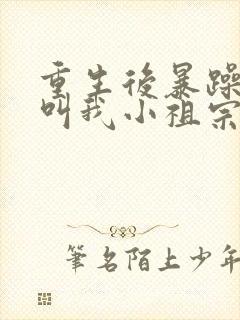 重生後暴躁
叫我小祖宗
筆名陌上少年